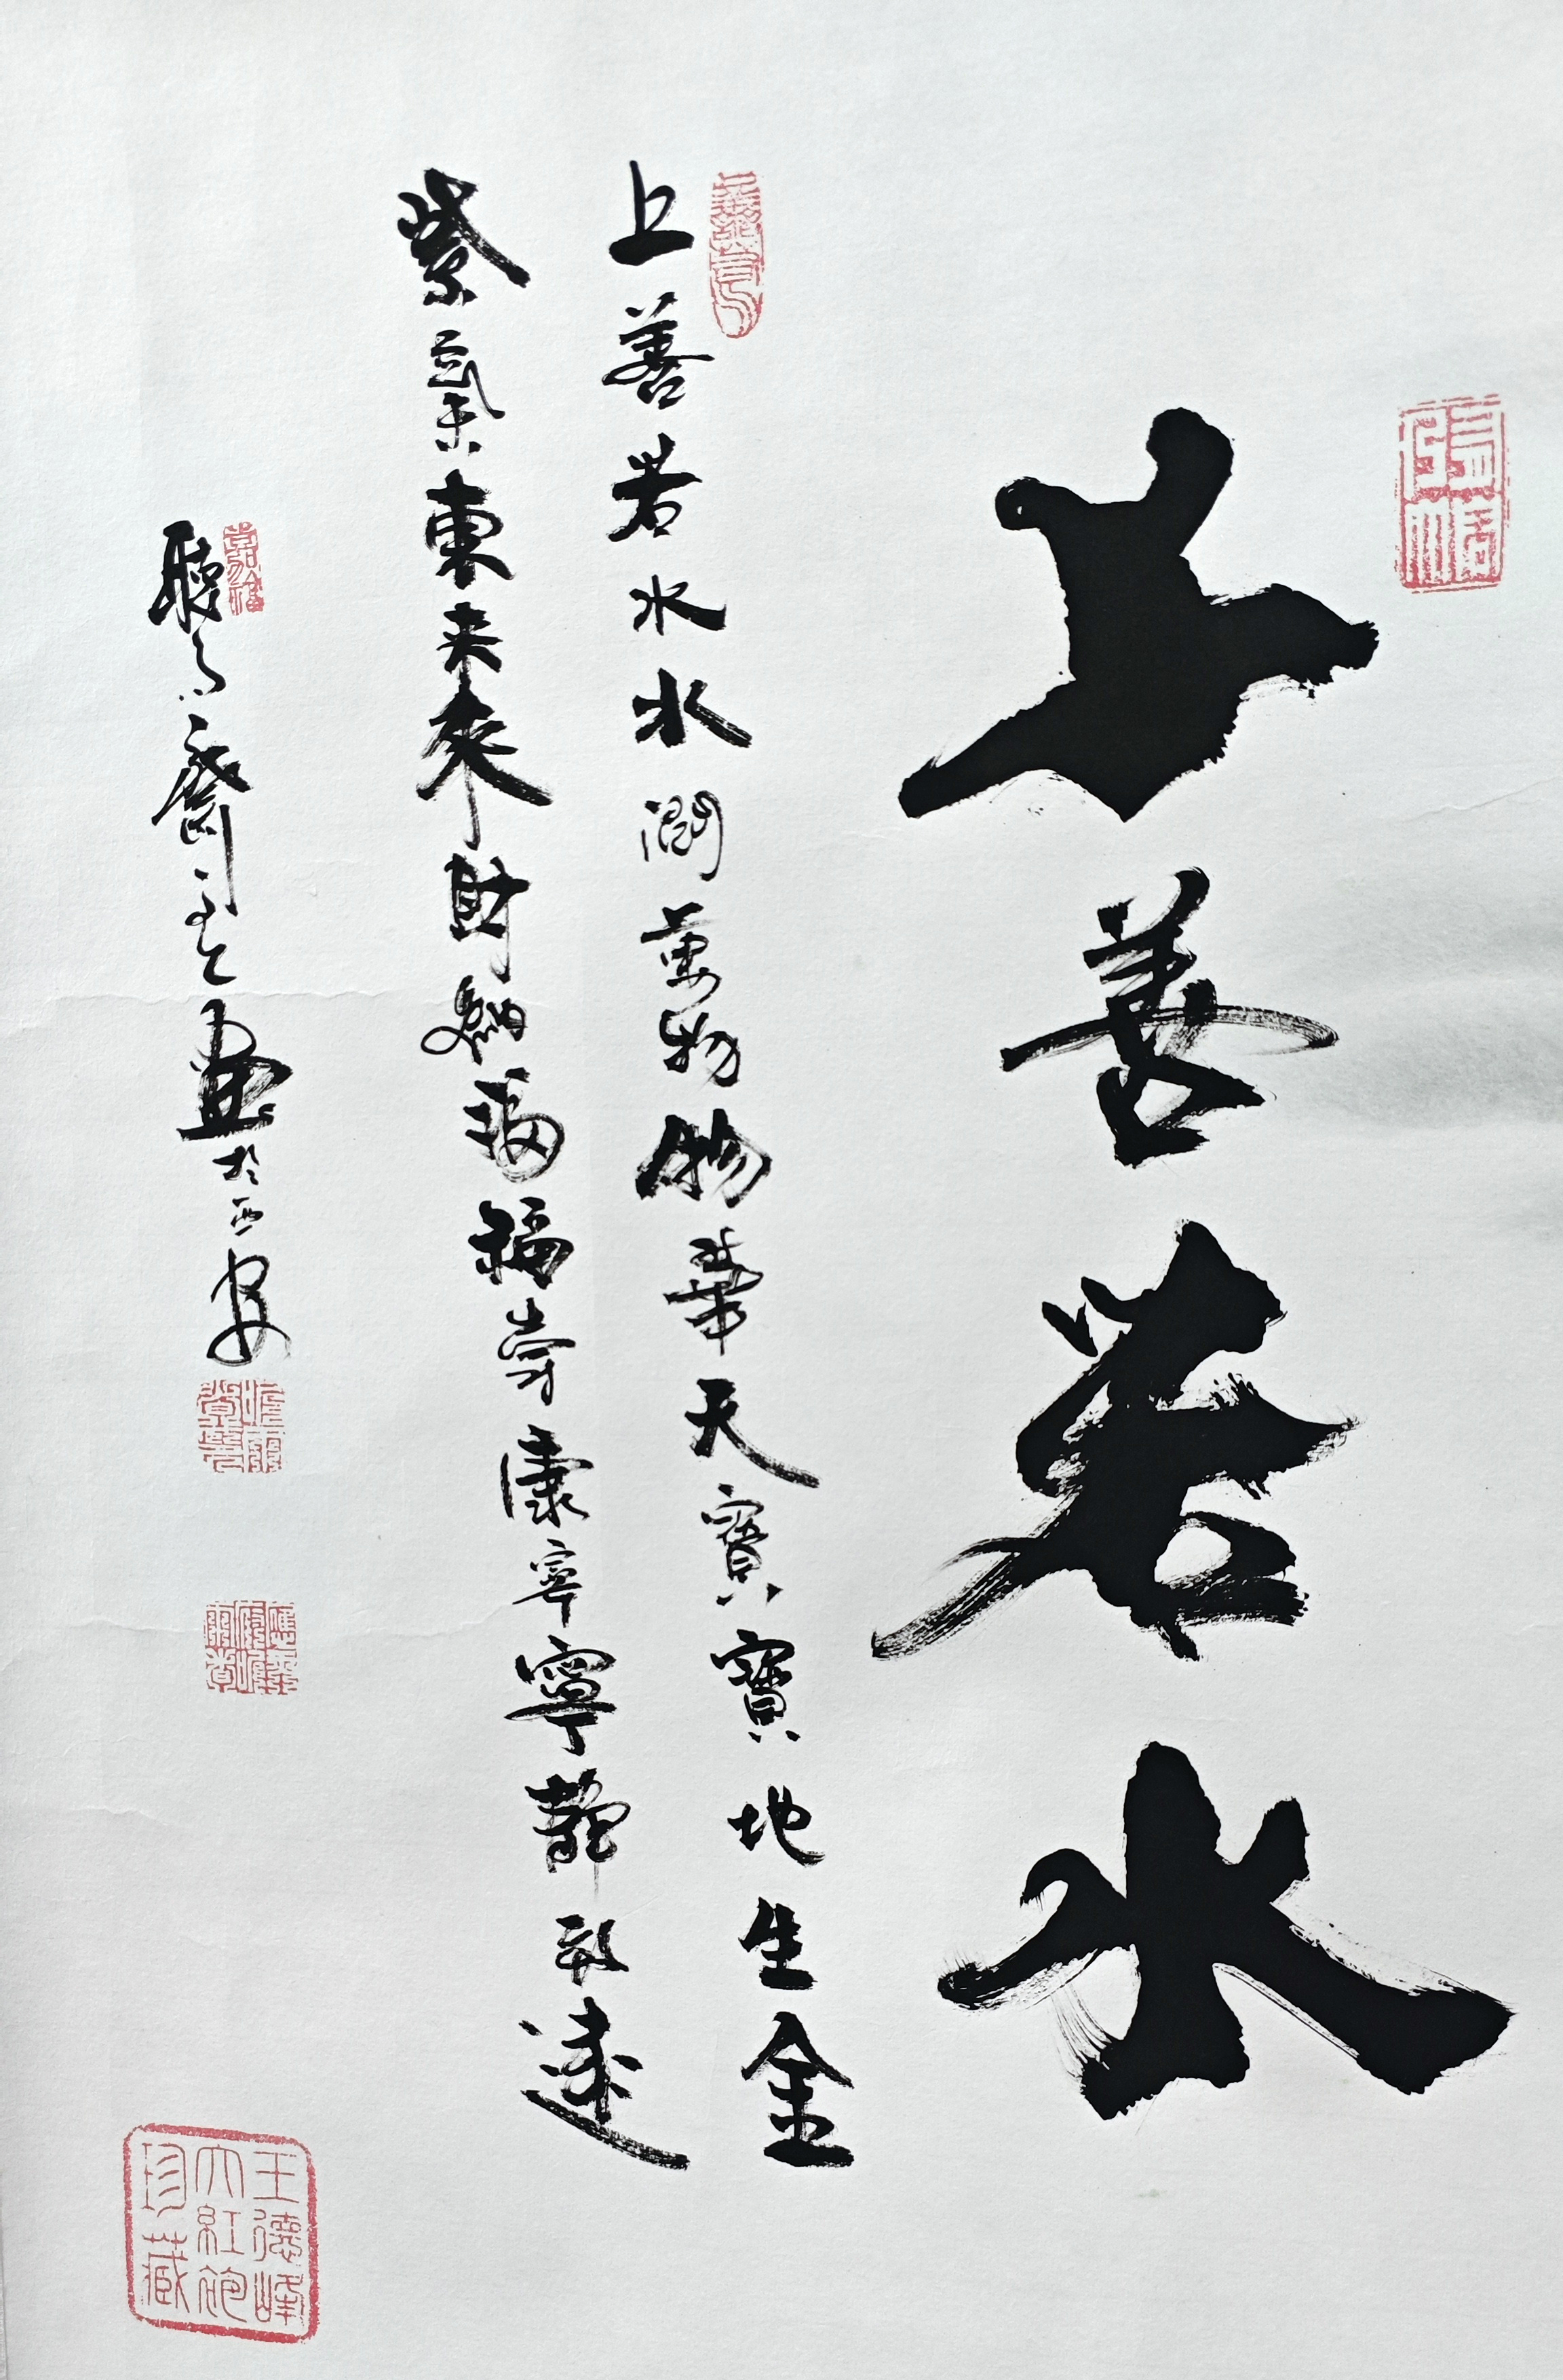 上善若水
上善若水水潤萬物物華天寶寶地生金
紫氣東來來財納福福壽康寧寧靜致遠
聽雨齋主畫於西安
王德峰大紅袍珍藏